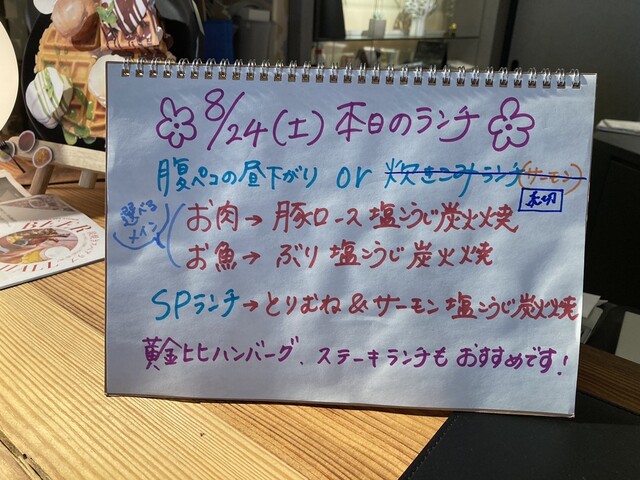 8/24(土) 本日のランチ
腹ペコの昼下がり or 炊きこみランチ(サーモン)
売切
選べるメイン
お肉→豚ロース塩こうじ炭火焼
お魚→ぶり塩こうじ炭火焼
SPランチ→とりむね&サーモン塩こうじ炭火焼
黄金比ハンバーグ、ステーキランチもおすすめです!